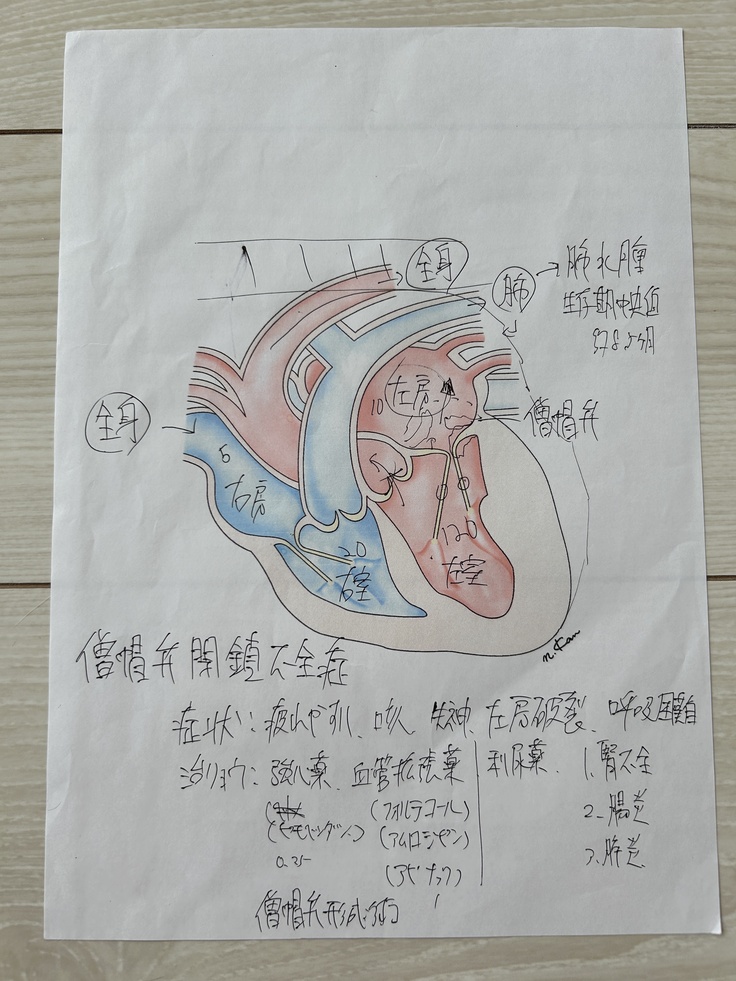 全身
肺→肺水腫
生存期中央値
全身
左房
10
僧帽弁
6
右房
20
右室
120
左室
n. Kan
僧帽弁閉鎖不全症
症状：疲れやすい、咳、失神、左房破裂、呼吸困難
治リョウ：強心薬、血管拡張薬 利尿薬、1.腎不全
(フォルテコール) 2.腸炎
(ピモベンダン) (アムロジピン)
0.25 3.膵炎
(アピナック)
僧帽弁形成術